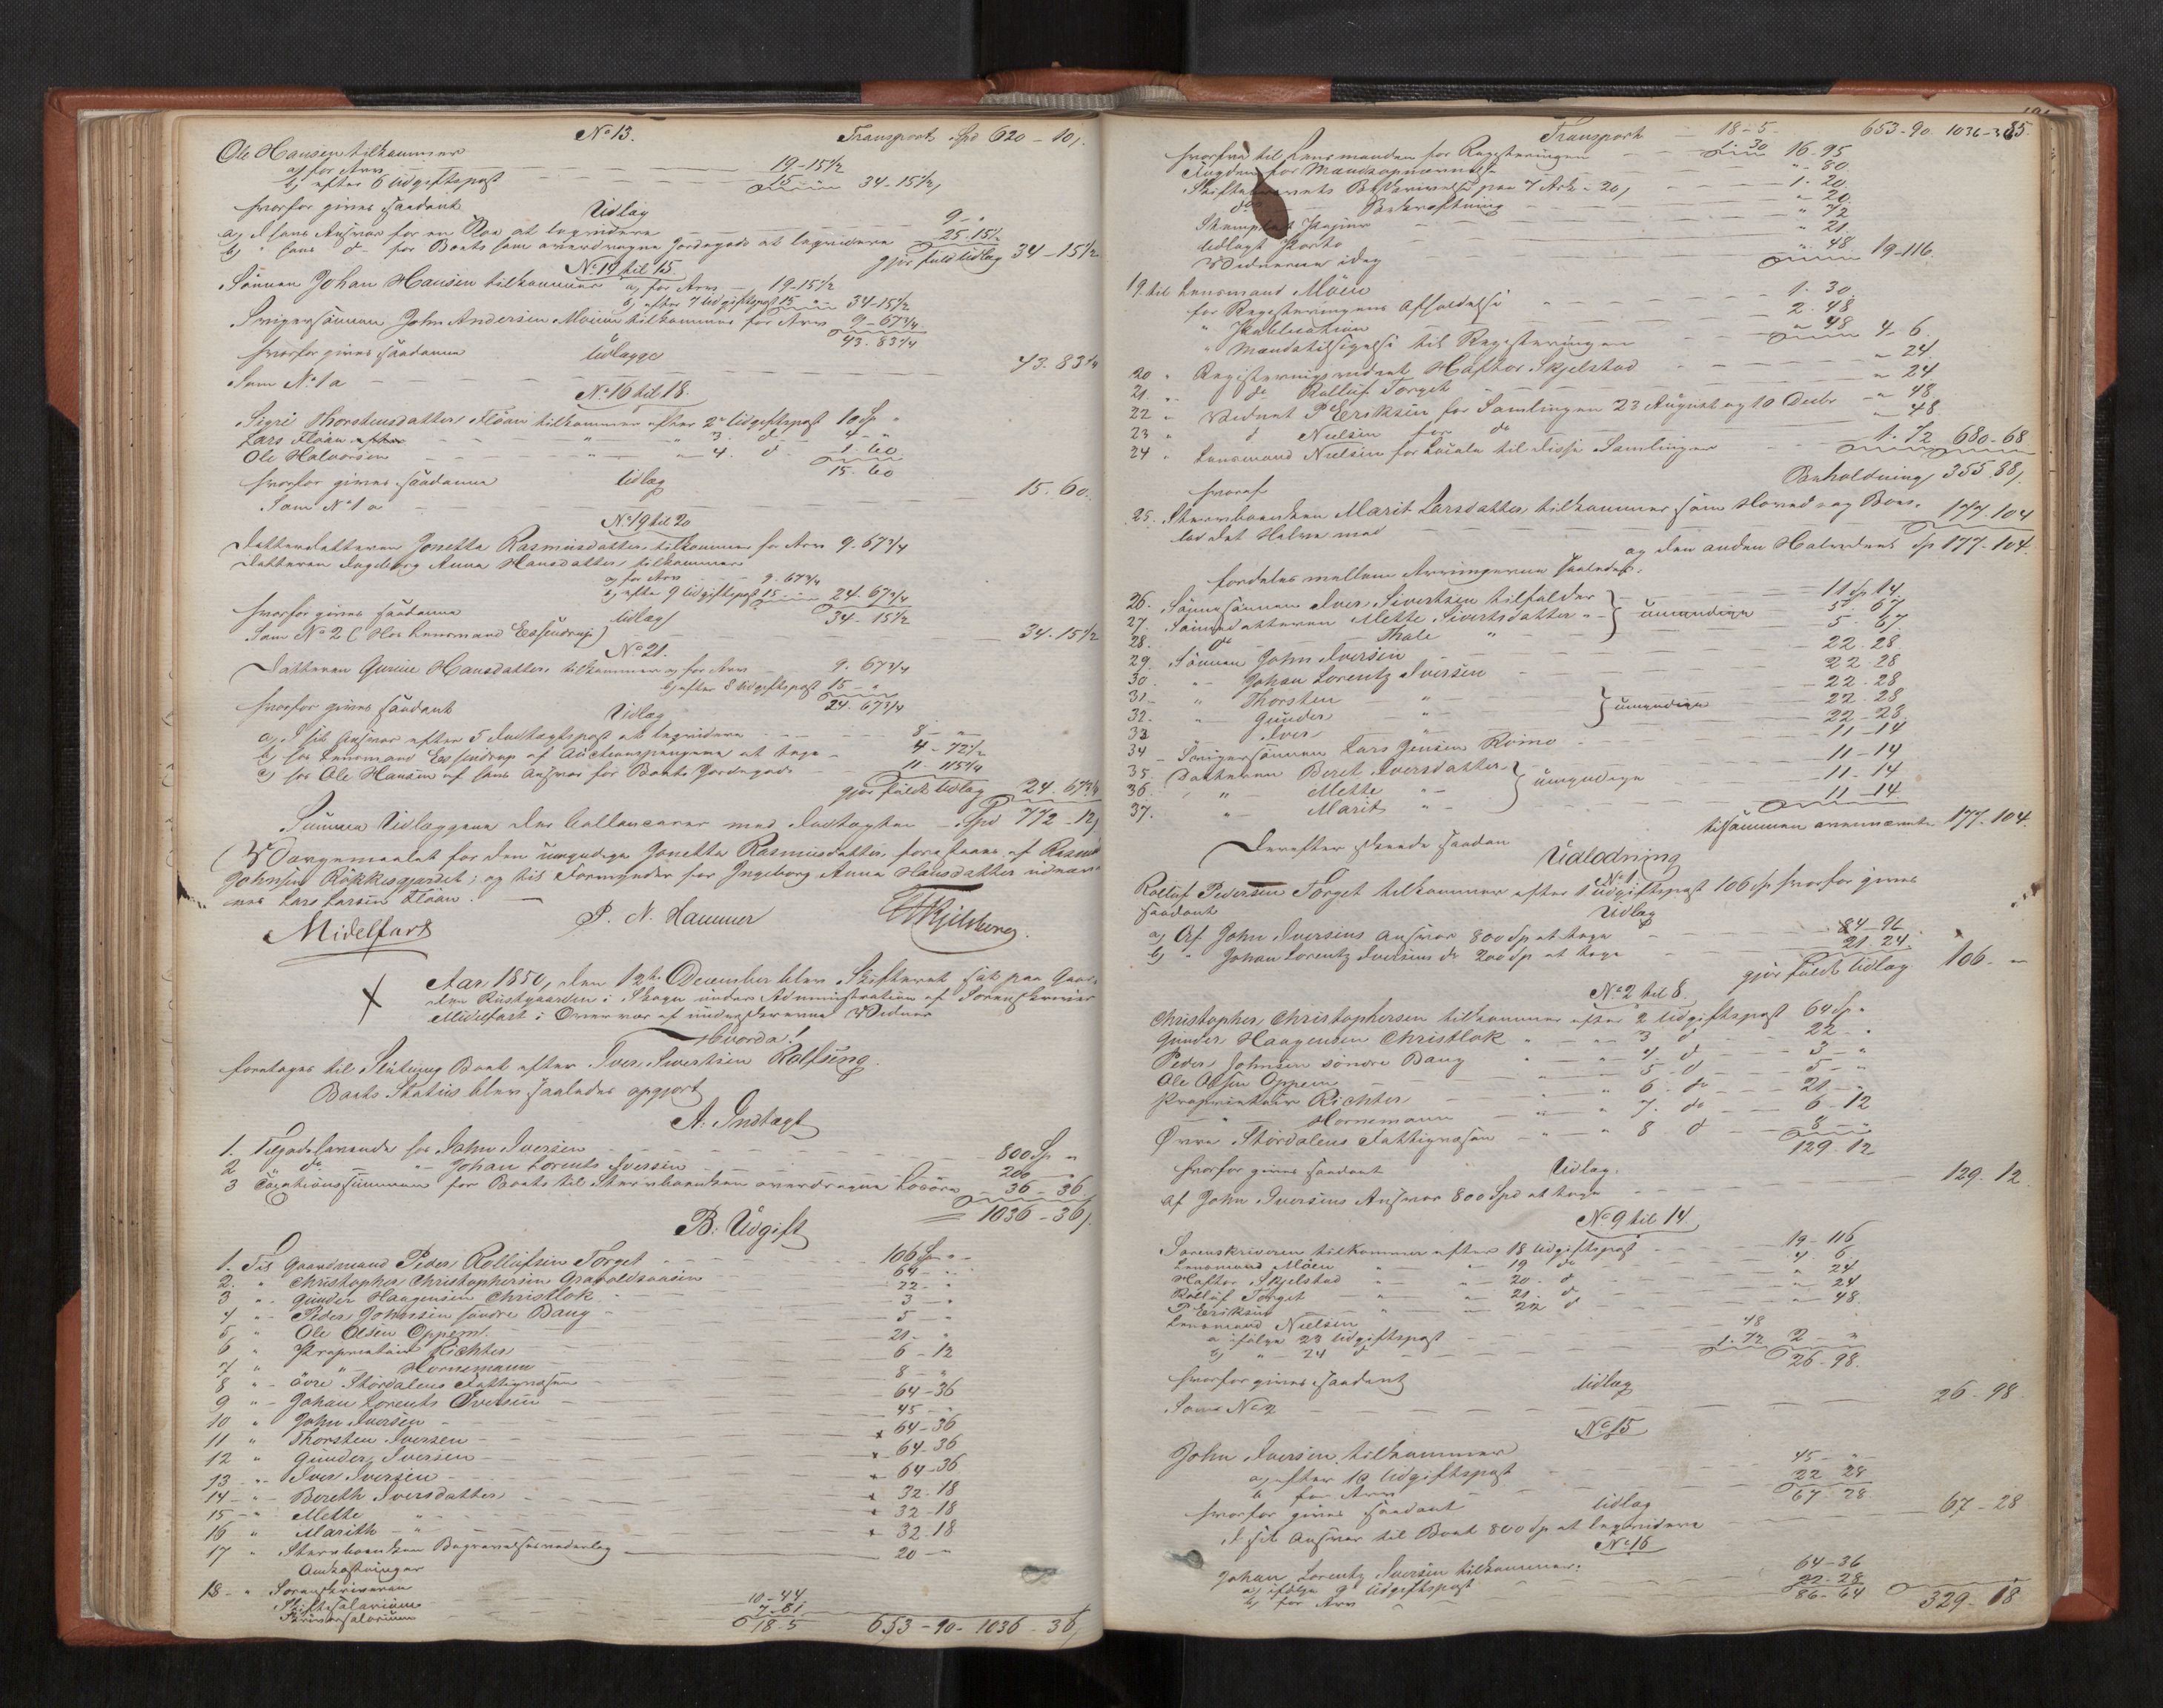 No 13.
Transport Spd 620 - 10,
Ole Hansen tilkommer
a, for Arv 19-15½
b, efter 6 Udgiftspost 15 34-15½,
hvorfor gives saadant
Udlag
a, I hans Ansvar for en Koe at liqvidere 9 - "
b, " hans do for Boets ham overdragne Jordegods at liqvidere 25-15½
gjør fuldt Udlag 34-15½
No 14 til 15.
Sønnen Johan Hansen tilkommer a, for Arv 19-15½
b, efter 7 Udgiftspost 15 - " 34-15½
Svigersønnen John Andersen Moum tilkommer for Arv 9-67¾
43-83¼
hvorfor gives saadanne
Udlægge
Som No 1 a 43.83¼
No 16 til 18.
Sigri Thorstensdatter Flöan tilkommer efter 2n Udgiftspost 10 Sp "
Lars Flöan efter " " 3. d 4 - "
Ole Halvorsen " " 4. d 1-60
15-60
hvorfor gives saadanne
Udlæg
Som No 1 a 15-60.
No 19 til 20
Datterdatteren Jonetta Rasmusdatter tilkommer for Arv 9-67¾
Datteren Ingeborg Anna Hansdatter tilkommer
a, for Arv 9-67¾
b, efter 9 Udgiftspost 15 - " 24-67¾
34-15½
hvorfor gives saadanne
Udlæg
Som No 2 (Hos Lensmand Essendrup) 34-15½
No 21.
Datteren Gurine Hansdatter tilkommer a, for Arv 9-67¾
b, efter 8 Udgiftspost 15 - "
24-67¾
hvorfor gives saadant
Udlæg
a, I sit Ansvar efter 5 Indtægtspost at liqvidere 8 - "
b, hos Lensmand Essendrup af Auctionspengene at tage 4-72½
c, hos Ole Hansen af hans Ansvar for Boets Jordegods 11-115¼
gjør fuldt Udlæg 24-67¾
Summa Udlæggene der ballancerer med Indtægten Spd 772-12,
Værgemaalet for den umyndige Jonetta Rasmusdatter forestaaes af Rasmus
Johnsen Røkkesgjardet; og til Formynder for Ingeborg Anna Hansdatter udnæv-
nes Lars Larsen Flöan.
Midelfart
P. N. Hammer
Aar 1850, den 12te December blev Skifteret sat paa Gaar-
den Rustgaarden i Skogn under Administration af Sorenskriver
Midelfart i Overvær af underskrevne Vidner
Hvorda!
foretages til Slutning Boet efter Iver Sivertsen Rolfseng.
Boets Status blev saaledes opgjort
A. Indtægt
1. Tilgodehavende hos John Iversen 800 Sp "
2 do " Johan Lorents Iversen 200 "
3 Taxationssummen for Boets til Stervboenken overdragne Løsöre 36-36
1036-36,
B. Udgift
1. Til Gaardmand Peder Rollufsen Forget 106 Sp "
2. " Christopher Christophersen 64 - "
3 " Gunder Haagensen Christlok 22 - "
4 " Peder Johnsen søndre Bang 3 - "
5 " Ole Olsen Oppem 5 - "
6 " Proprietair Richter 21 - "
7 " " Hornemann 6-12
8 " övre Stördalens Fattigvæsen 8 - "
9 " Johan Lorents Iversen 64-36
10 " John Iversen 45 - "
11 " Thorsten Iversen 64-36
12 " Gunder Iversen 64-36
13 " Iver Iversen 64-36
14 " Bereth Iversdatter 32-18
15 " Mette " 32-18
16 " Marith " 32-18
17 " Stervboenken Begravelsesvederlag 20 - "
Omkostninger
18 " Sorenskriveren
Skiftesalarium 10-44
Skriversalarium 7-81
18-5 653-90- 1036-36,
Transport 18-5- 653-90 1036-36
85.
hvorfra til Lensmanden for Registeringen 1-30 16-95
Fogden for Mandsopnævnelse " 80
Skiftebrevets Beskrivelse paa 7 Ark - 20, 1-20
do Bekræftning " 20.
Stemplet Papir " 72
Udlagt Porto " 21.
Vidnerne idag " 48 19-116.
19. til Lensmand Möen
for Registeringens Afholdelse 1-30
" Publication 2-48
" Mandstilsigelse til Registeringen " 48 4-6.
20 " Registeringsvidnet Haftor Skjelstad " 24
21. " do Rolluf Forget " 24
22 " Vidnet P Eriksen for Samlingen 23 August og 10 Decbr " 48
23 " d Nielsen for do " 48
24 " Lensmand Nielsen for Locale til disse Samlinger 1-72 680-68
hvoraf
Beholdning 355.88,
25. Stervboenken Marit Larsdatter tilkommer som Hoved- og Boes-
lod det Halve med 177-104
og den anden Halvdeel Sp 177-104.
fordeles mellem Arvingerne saaledes:
26. Sönnesönnen Iver Sivertsen tilfalder 11 Sp 14
27. Sönnedatteren Mette Sivertsdatter " } umyndige 5-67
28. do Thale " 5-67.
29. Sönnen John Iversen 22-28.
30. " Johan Lorentz Iversen 22-28
31. " Thorsten " 22-28
32. " Gunder " } umyndige 22-28
33 " Iver " 22-28
34 - Svigersønnen Lars Jensen Römo 11-14
35. Datteren Beret Iversdatter 11-14
36. " Mette " } umyndige 11-14
37. " Marit " 11-14
tilsammen ovennævnte 177-104.
Derefter skeede saadan
Udlodning
No 1.
Rolluf Pedersen Forget tilkommer efter 1 Udgiftspost 106 Sp hvorfor gives
saadant
Udlæg
a, Af John Iversens Ansvar 800 Sp at tage 84-96
b, " Johan Lorentz Iversens do 200 Sp at tage 21-24.
gjør fuldt Udlæg 106. -
No 2 til 8.
Christopher Christophersen tilkommer efter 2 Udgiftspost 64 Sp "
Gunder Haagensen Christlok " " 3 d 22 - "
Peder Johnsen söndre Bang " " 4. d 3 - "
Ole Olsen Oppem " " 5 d 5 - "
Proprietair Richter " " 6. do 21 - "
" Hornemann " " 7. do 6-12
Övre Stördalens Fattigvæsen " " 8 d 8 - "
129-12
hvorfor gives saadant
Udlæg.
af John Iversens Ansvar 800 Spd at tage 129-12.
No 9 til 14
Sorenskriveren tilkommer efter 18 Udgiftspost 19-116
Lensmand Möen " " 19 do 4-6
Haftor Skjelstad " " 20. d " 24
Rolluf Forget " " 21. d " 24
P Eriksen " " 22 d " 48
Lensmand Nielsen
a, ifölge 23 Udgiftspost " 48
b, " 24 d 1-72 2 - "
26-98.
hvorfor gives saadant
Udlæg
Som No 2 26-98
No 15
John Iversen tilkommer
a, efter 10 Udgiftspost 45 - "
b for Arv 22-28
67-28
hvorfor gives saadant
Udlæg
I sit Ansvar til Boet 800 Sp at liqvidere 67-28
No 16
Johan Lorentz Iversen tilkommer.
a, ifölge 9 Udgiftspost 64-36
b, for Arv 22-28
86-64
329-18